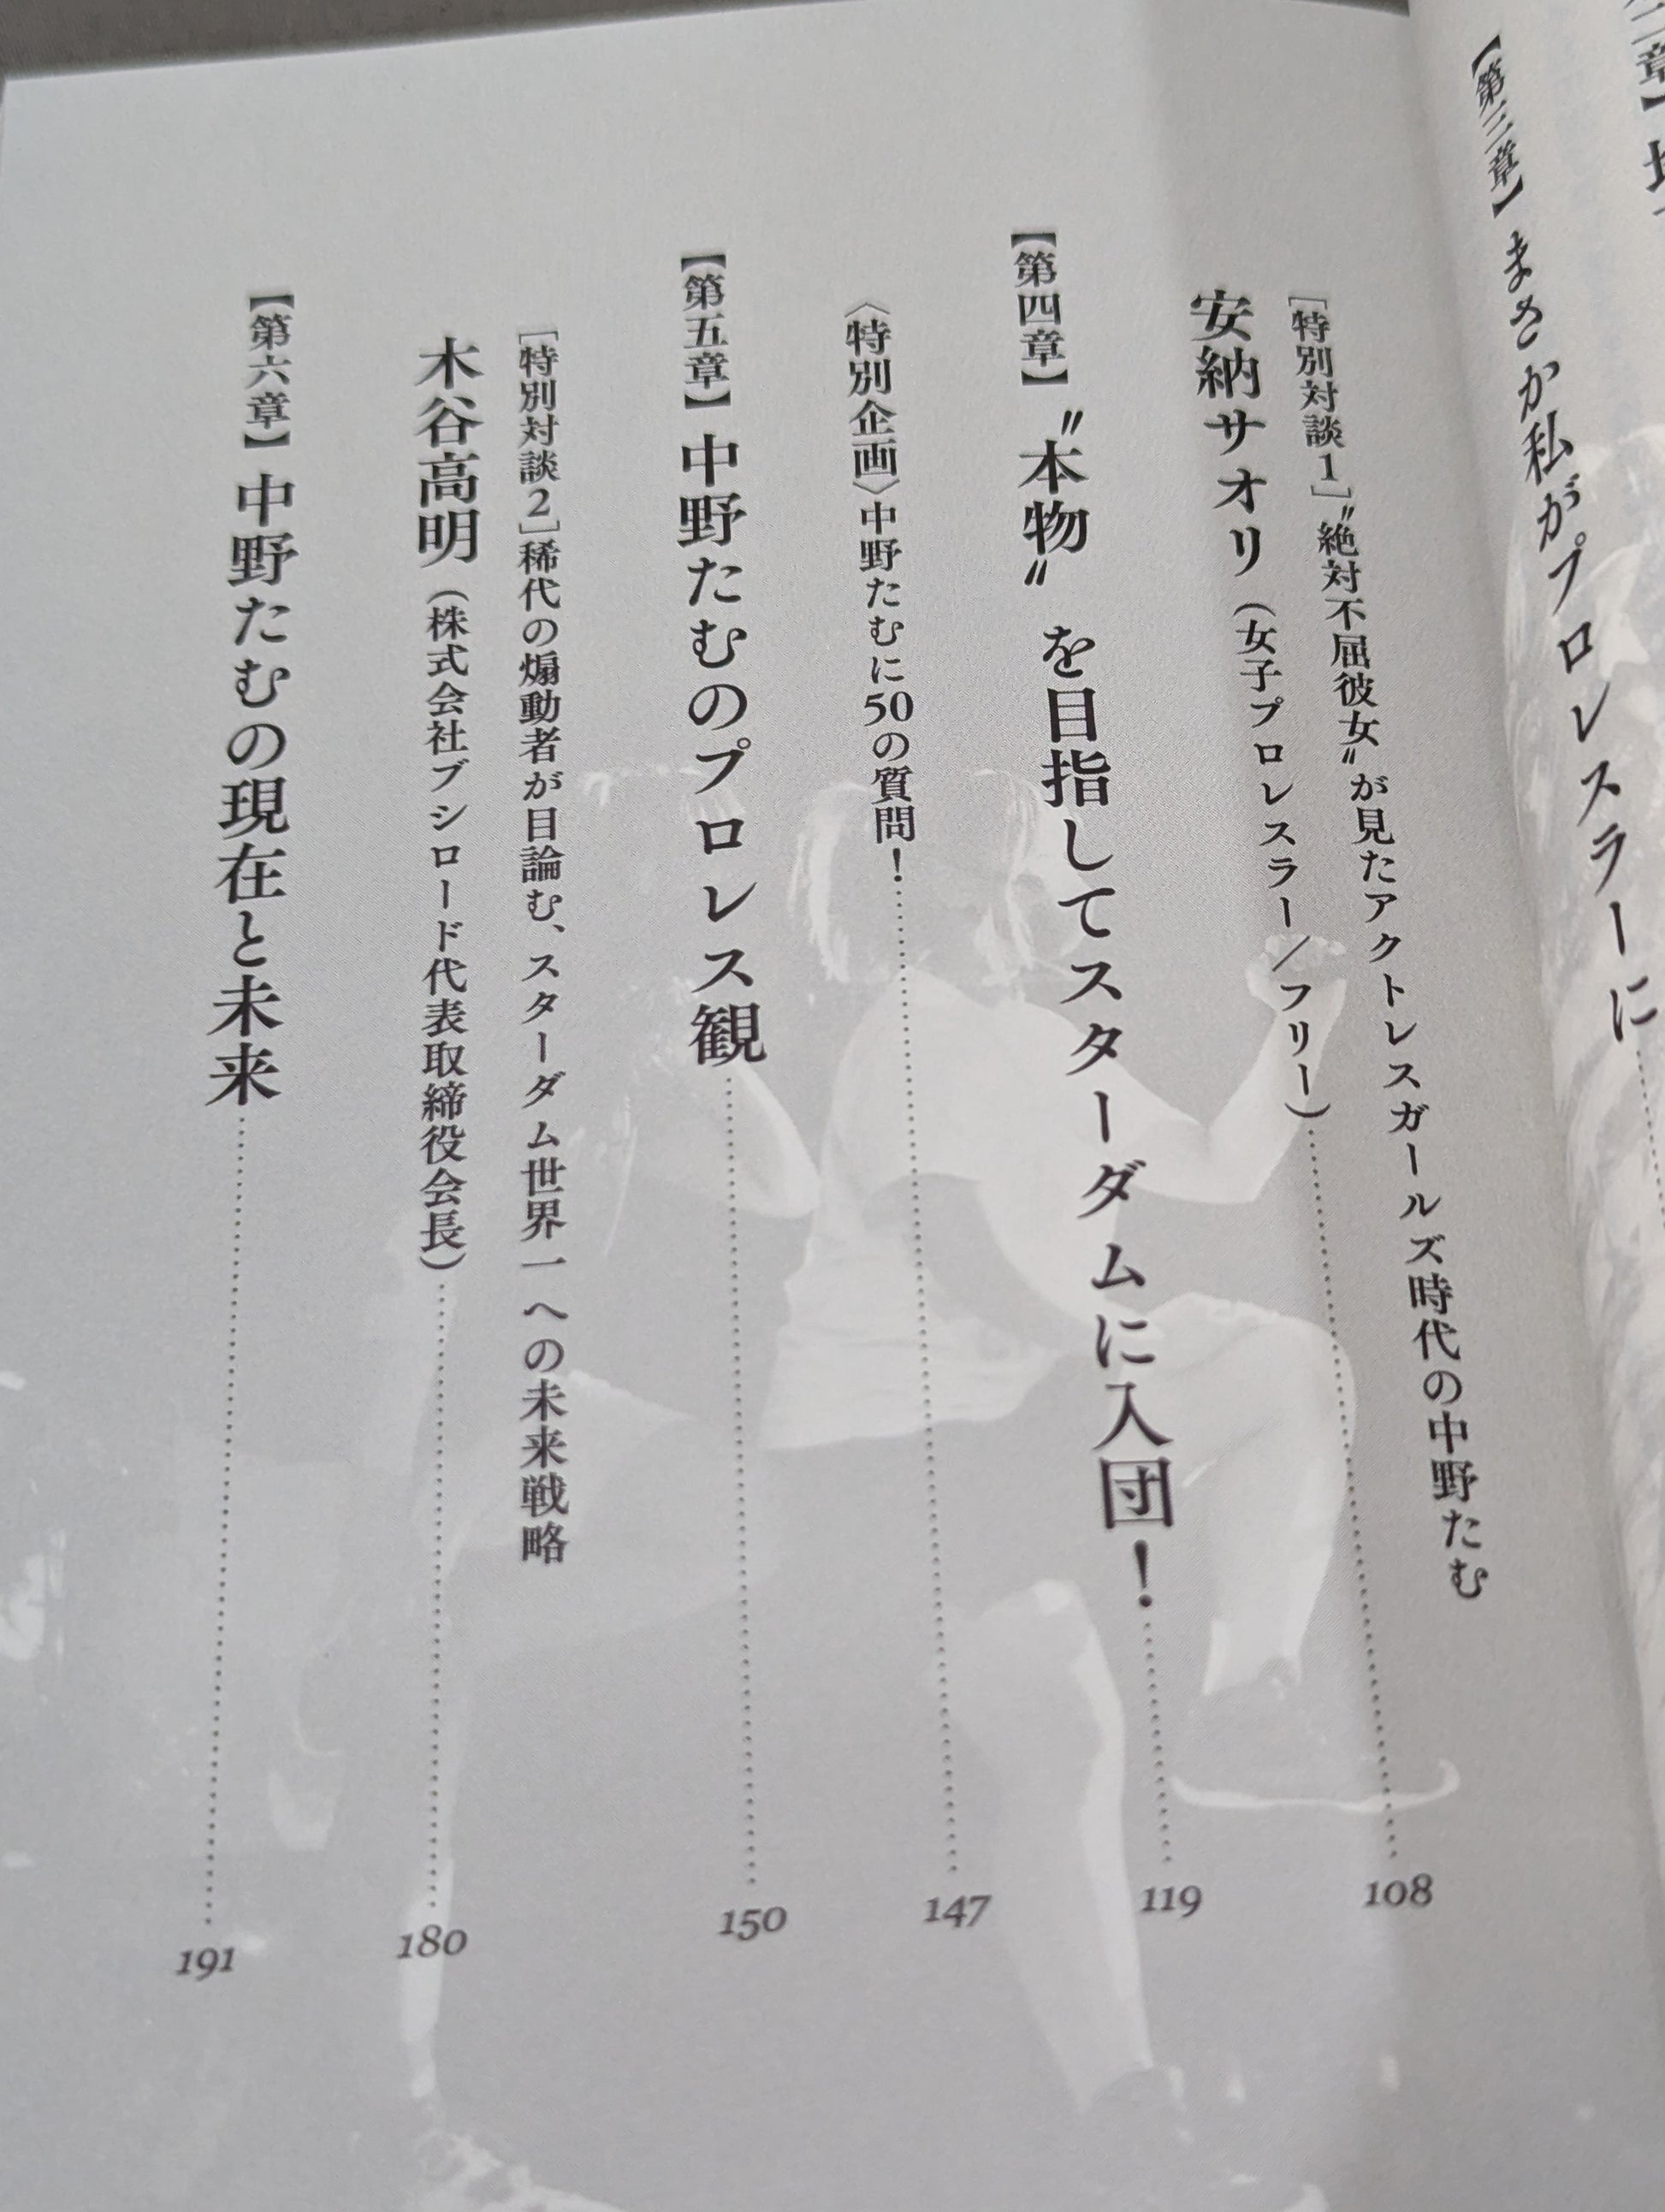 【第三章】まさか私がプロレスラーに
［特別対談1］〝絶対不屈彼女〟が見たアクトレスガールズ時代の中野たむ
安納サオリ（女子プロレスラー／フリー）…………108
【第四章】〝本物〟を目指してスターダムに入団！…………119
〈特別企画〉中野たむに50の質問！…………147
【第五章】中野たむのプロレス観…………150
［特別対談2］稀代の煽動者が目論む、スターダム世界一への未来戦略
木谷高明（株式会社ブシロード代表取締役会長）…………180
【第六章】中野たむの現在と未来…………191